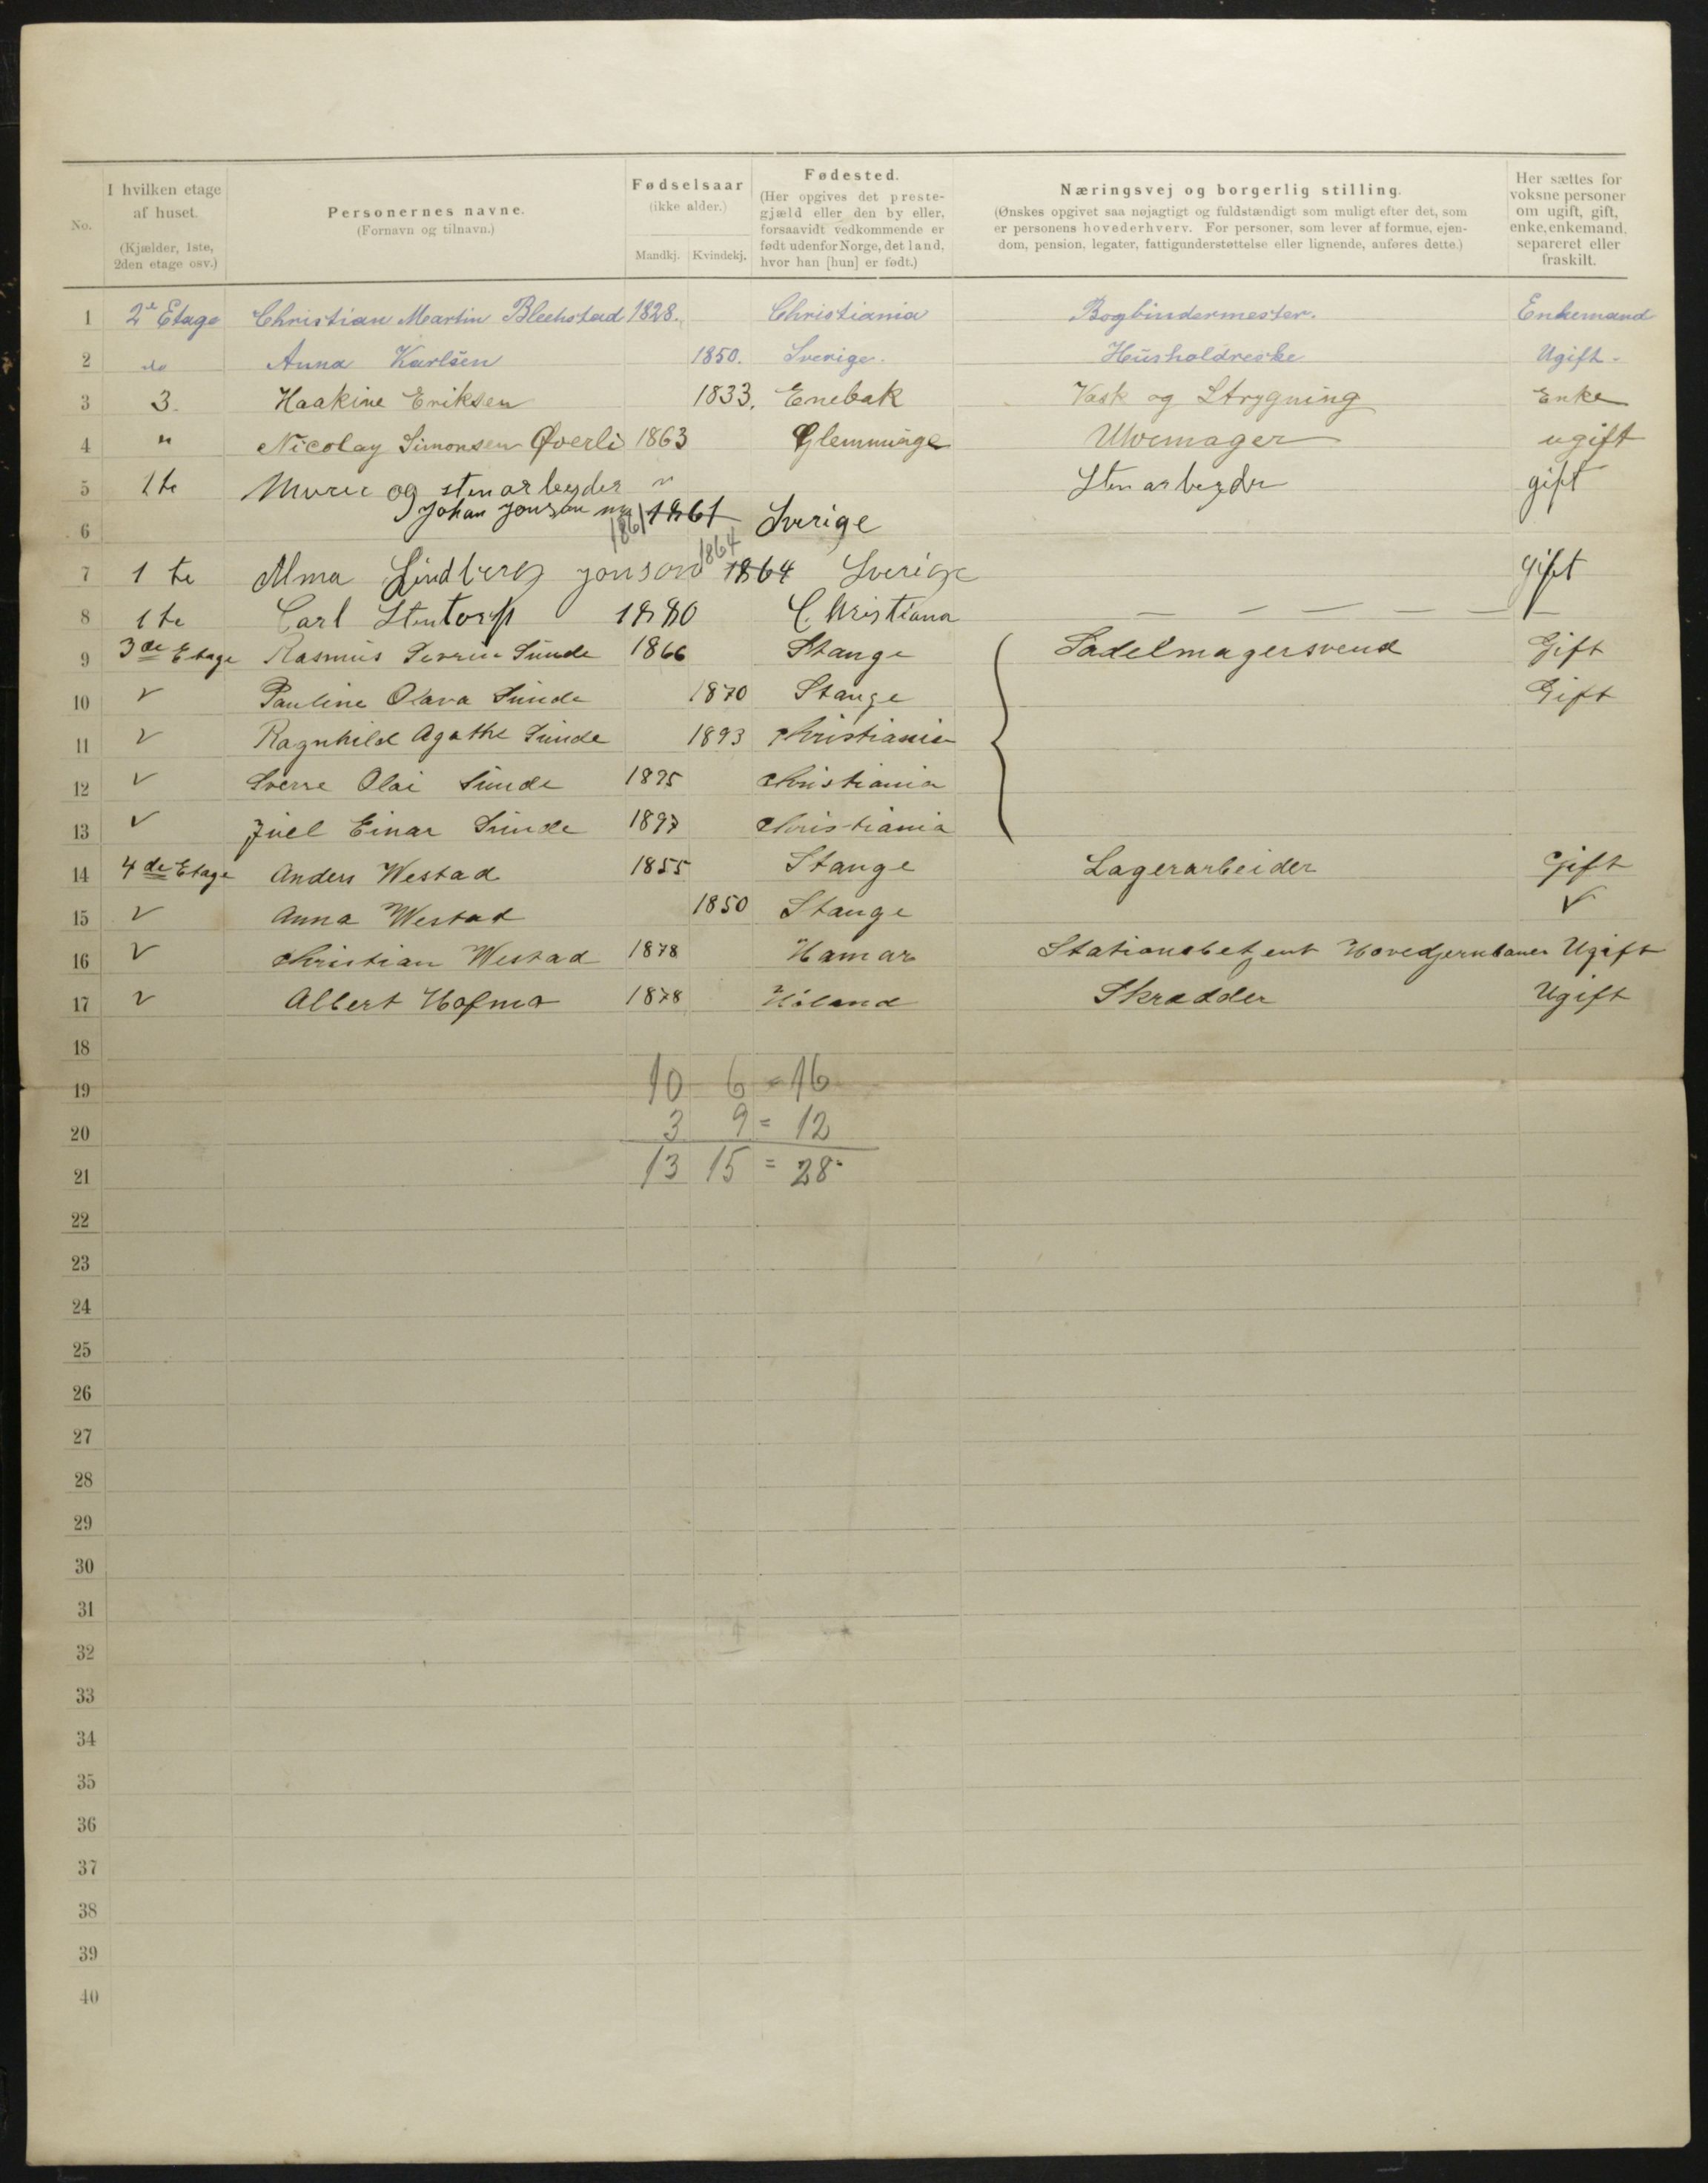 No.
I hvilken etage af huset. (Kjælder, 1ste, 2den etage osv.)
Personernes navne. (Fornavn og tilnavn.)
Fødselsaar (ikke alder.) Mandkj. Kvindekj.
Fødested. (Her opgives det prestegjæld eller den by eller, forsaavidt vedkommende er født udenfor Norge, det land, hvor han [hun] er født.)
Næringsvej og borgerlig stilling. (Ønskes opgivet saa nøjagtigt og fuldstændigt som muligt efter det, som er personens hovederhverv. For personer, som lever af formue, ejendom, pension, legater, fattigunderstøttelse eller lignende, anføres dette.)
Her sættes for voksne personer om ugift, gift, enke, enkemand, separeret eller fraskilt.
1 2e Etage Christian Martin Blechstad 1828. Christiania Bogbindermester. Enkemand
2 do Anna Karlsen 1850. Sverige. Husholdreske Ugift.
3 3. Haakine Eriksen 1833. Enebak Vask og Strygning Enke
4 " Nicolay Simonsen Øverli 1863 Glemminge Uhrmager ugift
5 1te Murer og stenarbeyder Stenarbeyder gift
6 Johan Jonson 1861 1861 Sverige
7 1 te Alma Lindberg Jonson 1864 1864 Sverige gift
8 1te Carl Stentorp 1880 Christiana — — — — — —
9 3de Etage Rasmus Severin Sunde 1866 Stange Sadelmagersvend Gift
10 Pauline Olava Sunde 1870 Stange Gift
11 Ragnhild Agathe Sunde 1893 Christiania
12 Sverre Olai Sunde 1895 Christiania
13 Juel Einar Sunde 1897 Christiania
14 4de Etage Anders Westad 1855 Stange Lagerarbeider Gift
15 Anna Westad 1850 Stange
16 Christian Westad 1878 Hamar Stationsbetjent Hovedjernbanen Ugift
17 Albert Hofmo 1878 Høland Skrædder Ugift
18
19 10 6 = 16
20 3 9 = 12
21 13 15 = 28
22
23
24
25
26
27
28
29
30
31
32
33
34
35
36
37
38
39
40